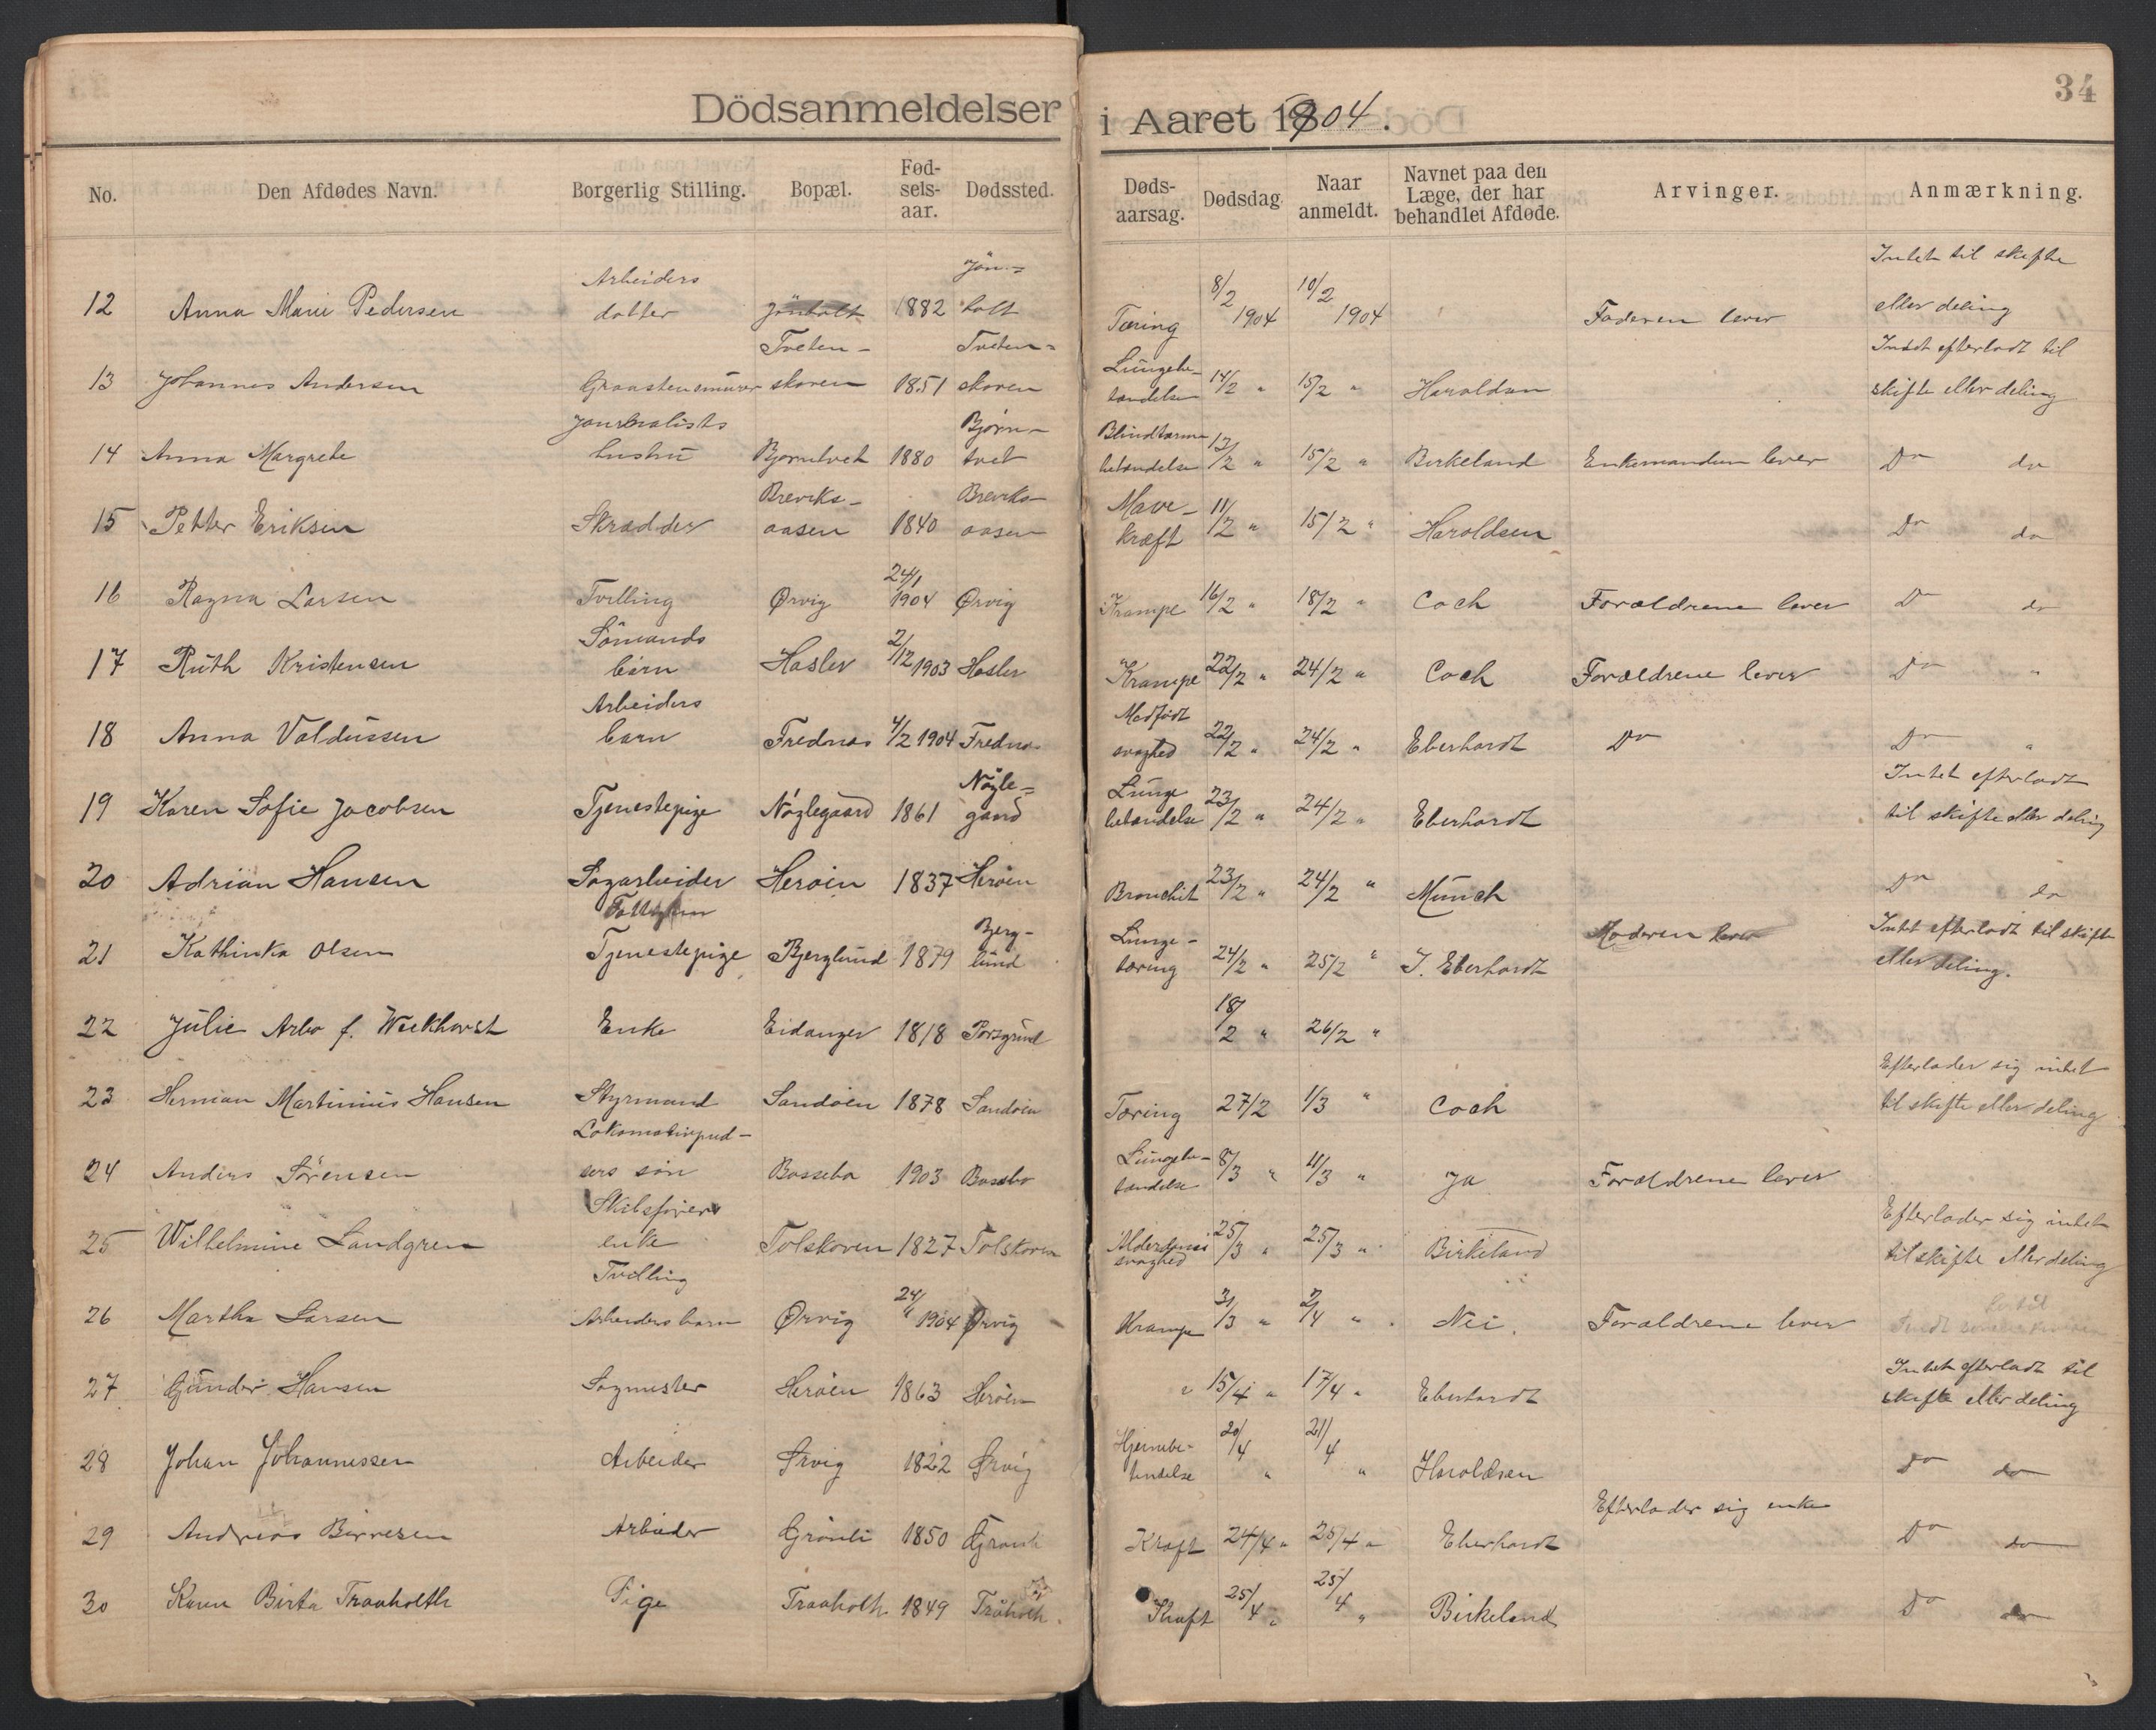 Dödsanmeldelser i Aaret 1904.
34
No. Den Afdødes Navn. Borgerlig Stilling. Bopæl. Fødselsaar. Dødssted. Dødsaarsag. Dødsdag Naar anmeldt. Navnet paa den Læge, der har behandlet Afdøde. Arvinger. Anmærkning.
12 Anna Marie Pedersen Arbeiders datter Jönholt 1882 Jön= holt Tæring 8/2 1904 10/2 1904 Faderen lever Intet til skifte eller deling
13 Johannes Andersen Graastensmurer Tveten- skoven 1851 Tveten= skoven Lungebe- tændelse 14/2 " 15/2 " Haraldsen Intet efterladt til skifte eller deling
14 Anna Margrete Journalists hustru Bjørntvet 1880 Bjørn- tvet Blindtarms betændelse 13/2 " 15/2 " Birkeland Enkemanden lever Do do
15 Petter Eriksen Skrædder Breviks- aasen 1840 Breviks- aasen Mave- kræft 11/2 " 15/2 " Haroldsen Do do
16 Ragna Larsen Tvilling Ørvig 24/1 1904 Ørvig Krampe 16/2 " 18/2 " Coch Forældrene lever Do do
17 Ruth Kristensen Sömands barn Hasler 2/12 1903 Hasler Krampe 22/2 " 24/2 " Coch Forældrene lever Do "
18 Anna Valdussen Arbeiders barn Frednæs 4/2 1904 Frednæs Medfødt svaghed 22/2 " 24/2 " Eberhardt Do Do "
19 Karen Sofie Jacobsen Tjenestepige Nøglegaard 1861 Nøgle= gaard Lunge betændelse 23/2 " 24/2 " Eberhardt Intet efterladt til skifte eller deling
20 Adrian Hansen Sagarbeider Heröen 1837 Heröen Bronchit 23/2 " 24/2 " Münch Do do
21 Kathinka Olsen Tjenestepige Bjerglund 1879 Bjerg- lund Lunge- tæring 24/2 " 25/2 " J. Eberhardt Moderen lever Intet efterladt til skifte eller deling.
22 Julie Arbo f. Weekhorst Enke Eidanger 1818 Porsgrund 18/2 " 26/2 "
23 Herman Martinius Hansen Styrmand Sandöen 1878 Sandöen Tæring 27/2 1/3 " Coch Efterlader sig intet til skifte eller deling
24 Anders Sörensen Lokomotivpud- sers sön Bassebo 1903 Bassebo Lungebe- tændelse 8/3 " 11/3 " Ja Forældrene lever
25 Wilhelmine Landgren Skibsförer enke Tolskoven 1827 Tolskoven Alderdoms svaghed 25/3 " 25/3 " Birkeland Efterlader sig intet til skifte eller deling
26 Martha Larsen Tvilling Arbeiders barn Ørvig 24/1 1904 Ørvig Krampe 31/3 " 2/4 " Nei. Forældrene lever
27 Gunder Hansen Sagmester Heröen 1863 Heröen " 15/4 " 17/4 " Eberhardt Intet efterladt til skifte eller deling
28 Johan Johannessen Arbeider Ørvig 1822 Ørvig Hjernebe- tendelse 20/4 " 21/4 " Haroldsen Do do
29 Andreas Birresen Arbeider Grönli 1850 Grönli Kræft 24/4 " 25/4 " Eberhardt Efterlader sig enke Do do
30 Karen Birta Traaholth Pige Traaholth 1849 Traholth. 25/4 " 25/4 " Birkeland Do do